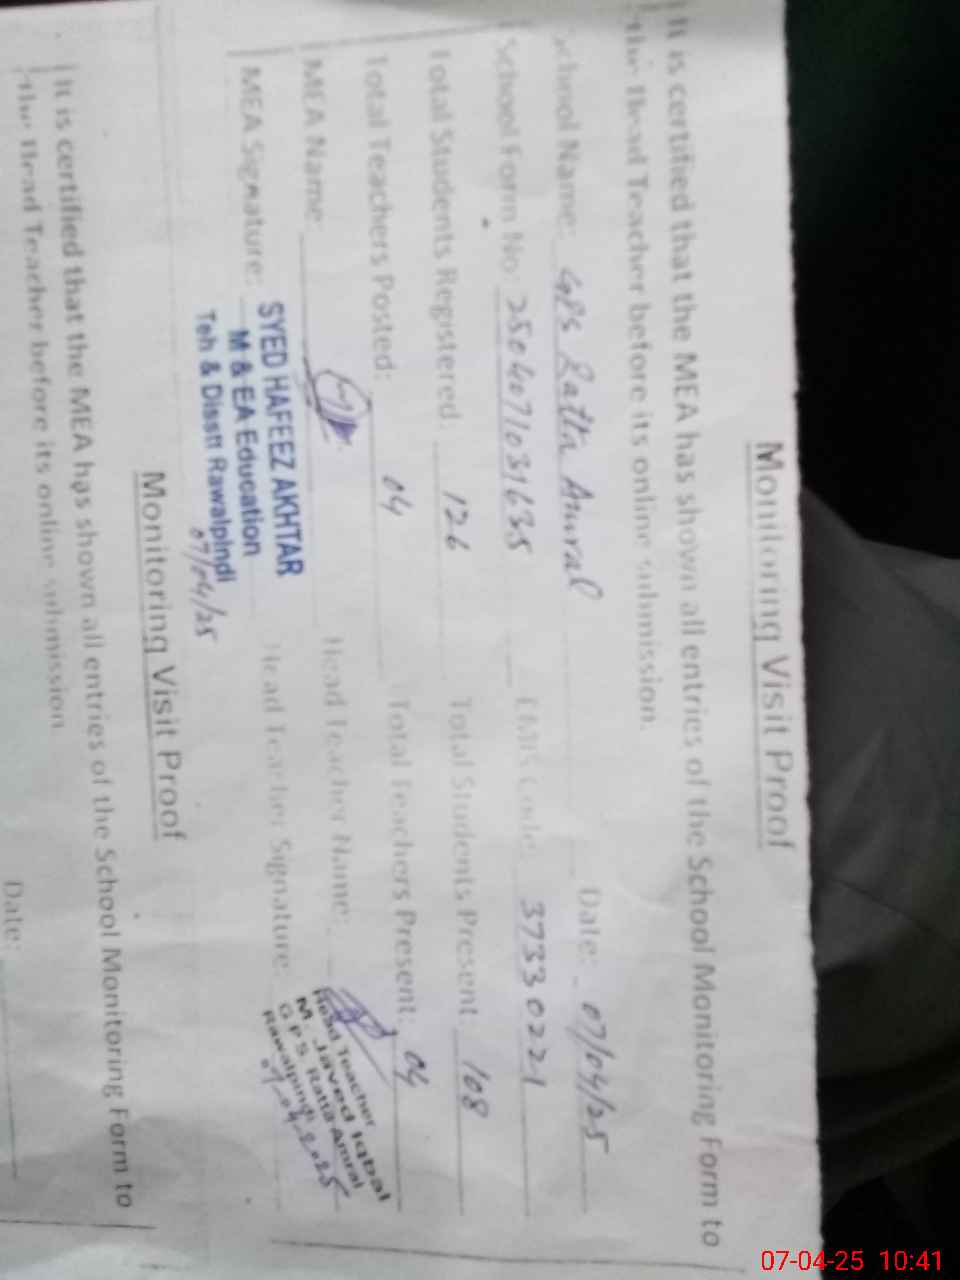 Monitoring Visit Proof
It is certified that the MEA has shown all entries of the School Monitoring Form to
the Head Teacher before its online submission.
School Name: GPS Ratta Amral Date: 07/04/25
School Form No: 2504071031635 EMIS Code: 37330221
Total Students Registered: 126 Total Students Present: 108
Total Teachers Posted: 04 Total Teachers Present: 04
MEA Name: Head Teacher Name:
MEA Signature: Head Teacher Signature:
SYED HAFEEZ AKHTAR
M & EA Education
Teh & Disstt Rawalpindi
07/04/25
Head Teacher
M. Javed Iqbal
G.P.S. Ratta Amral
Rawalpindi
07-04-2025
Monitoring Visit Proof
It is certified that the MEA has shown all entries of the School Monitoring Form to
the Head Teacher before its online submission
Date:
07-04-25 10:41